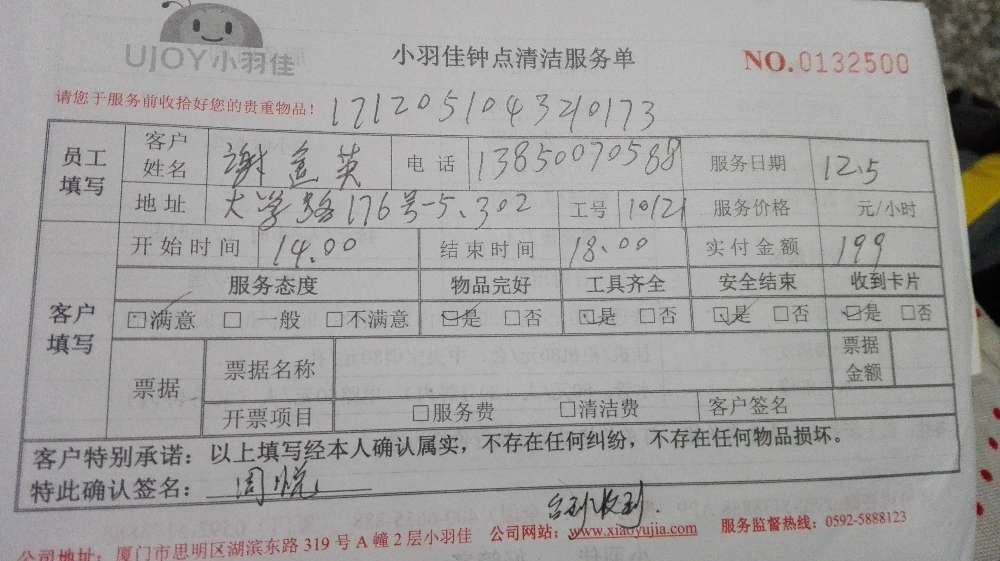 UJOY小羽佳
小羽佳钟点清洁服务单
NO.0132500
请您于服务前收拾好您的贵重物品!
171205104320173
员工填写 客户姓名 谢 英 电话 13850070588 服务日期 12.5
地址 大学路176号-5.302 工号 服务价格 元/小时
客户填写 开始时间 14.00 结束时间 18.00 实付金额 199
服务态度 物品完好 工具齐全 安全结束 收到卡片
☑满意 □ 一般 □不满意 ☑是 □否 ☑是 □否 ☑是 □否 ☑是 □否
票据 票据名称 票据金额
开票项目 □服务费 □清洁费 客户签名
客户特别承诺:以上填写经本人确认属实,不存在任何纠纷,不存在任何物品损坏。
特此确认签名: 周悦
收到.
公司地址:厦门市思明区湖滨东路 319 号 A 幢 2 层小羽佳 公司网站:www.xiaoyujia.com 服务监督热线:0592-5888123